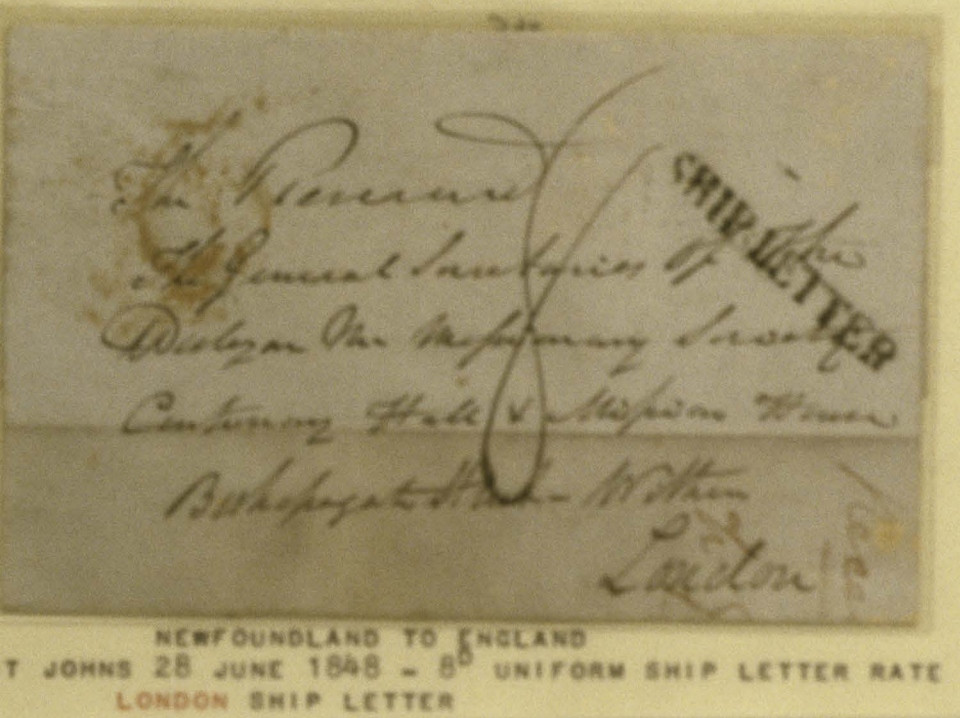 SHIP LETTER
The Reverend
8
The General Secretaries of the
Wesleyan Missionary Society
Centenary Hall & Mission House
Bishopsgate Street Within
London
NEWFOUNDLAND TO ENGLAND
T JOHNS 28 JUNE 1848 - 8D UNIFORM SHIP LETTER RATE
LONDON SHIP LETTER